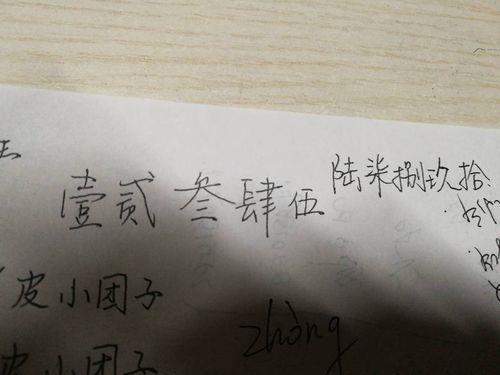 壹贰叁肆伍 陆柒捌玖拾
皮小团子
zhòng
皮小团子